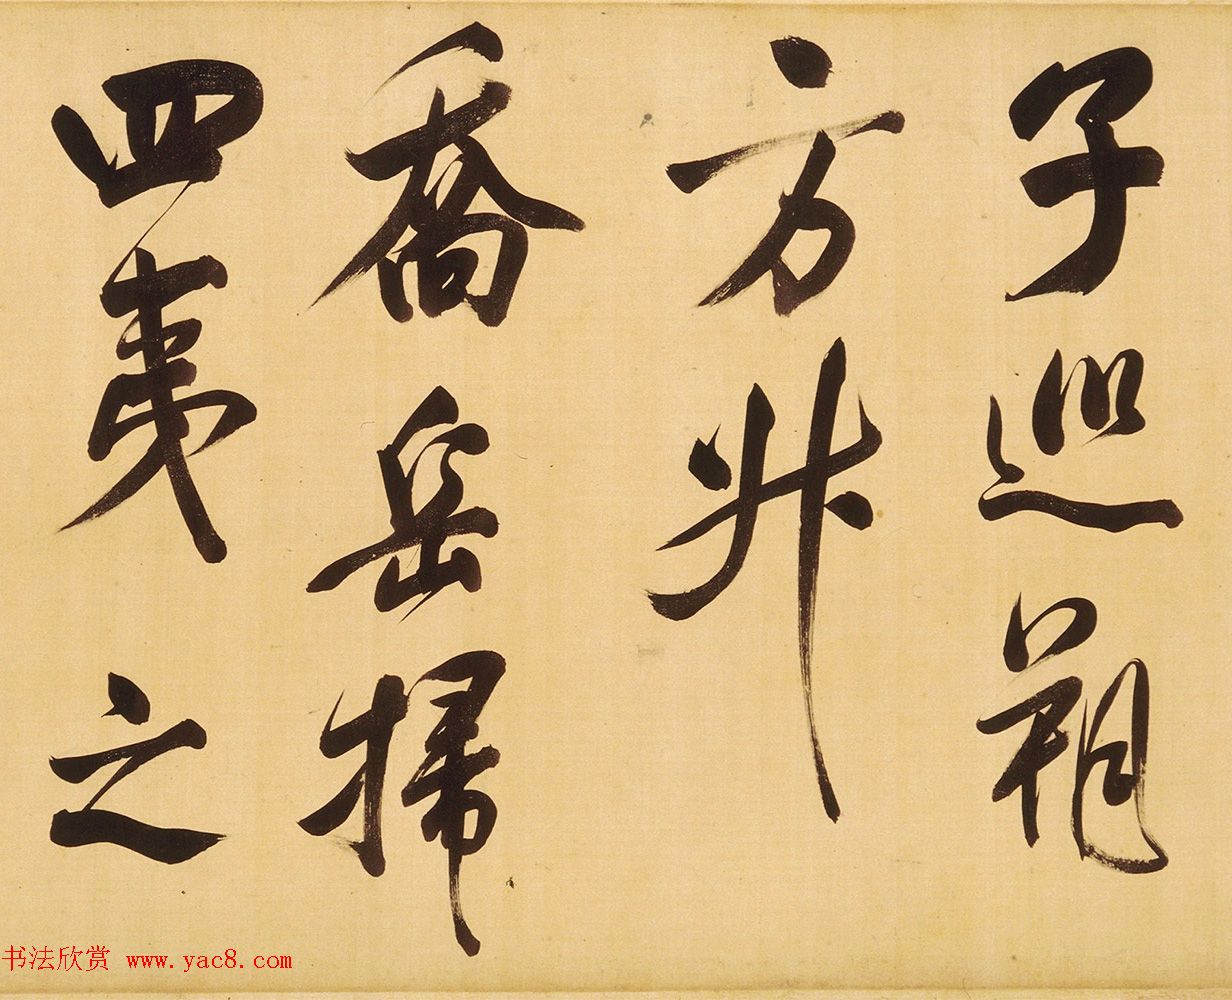 子巡朔
方升
喬岳掃
四夷之
书法欣赏 www.yac8.com